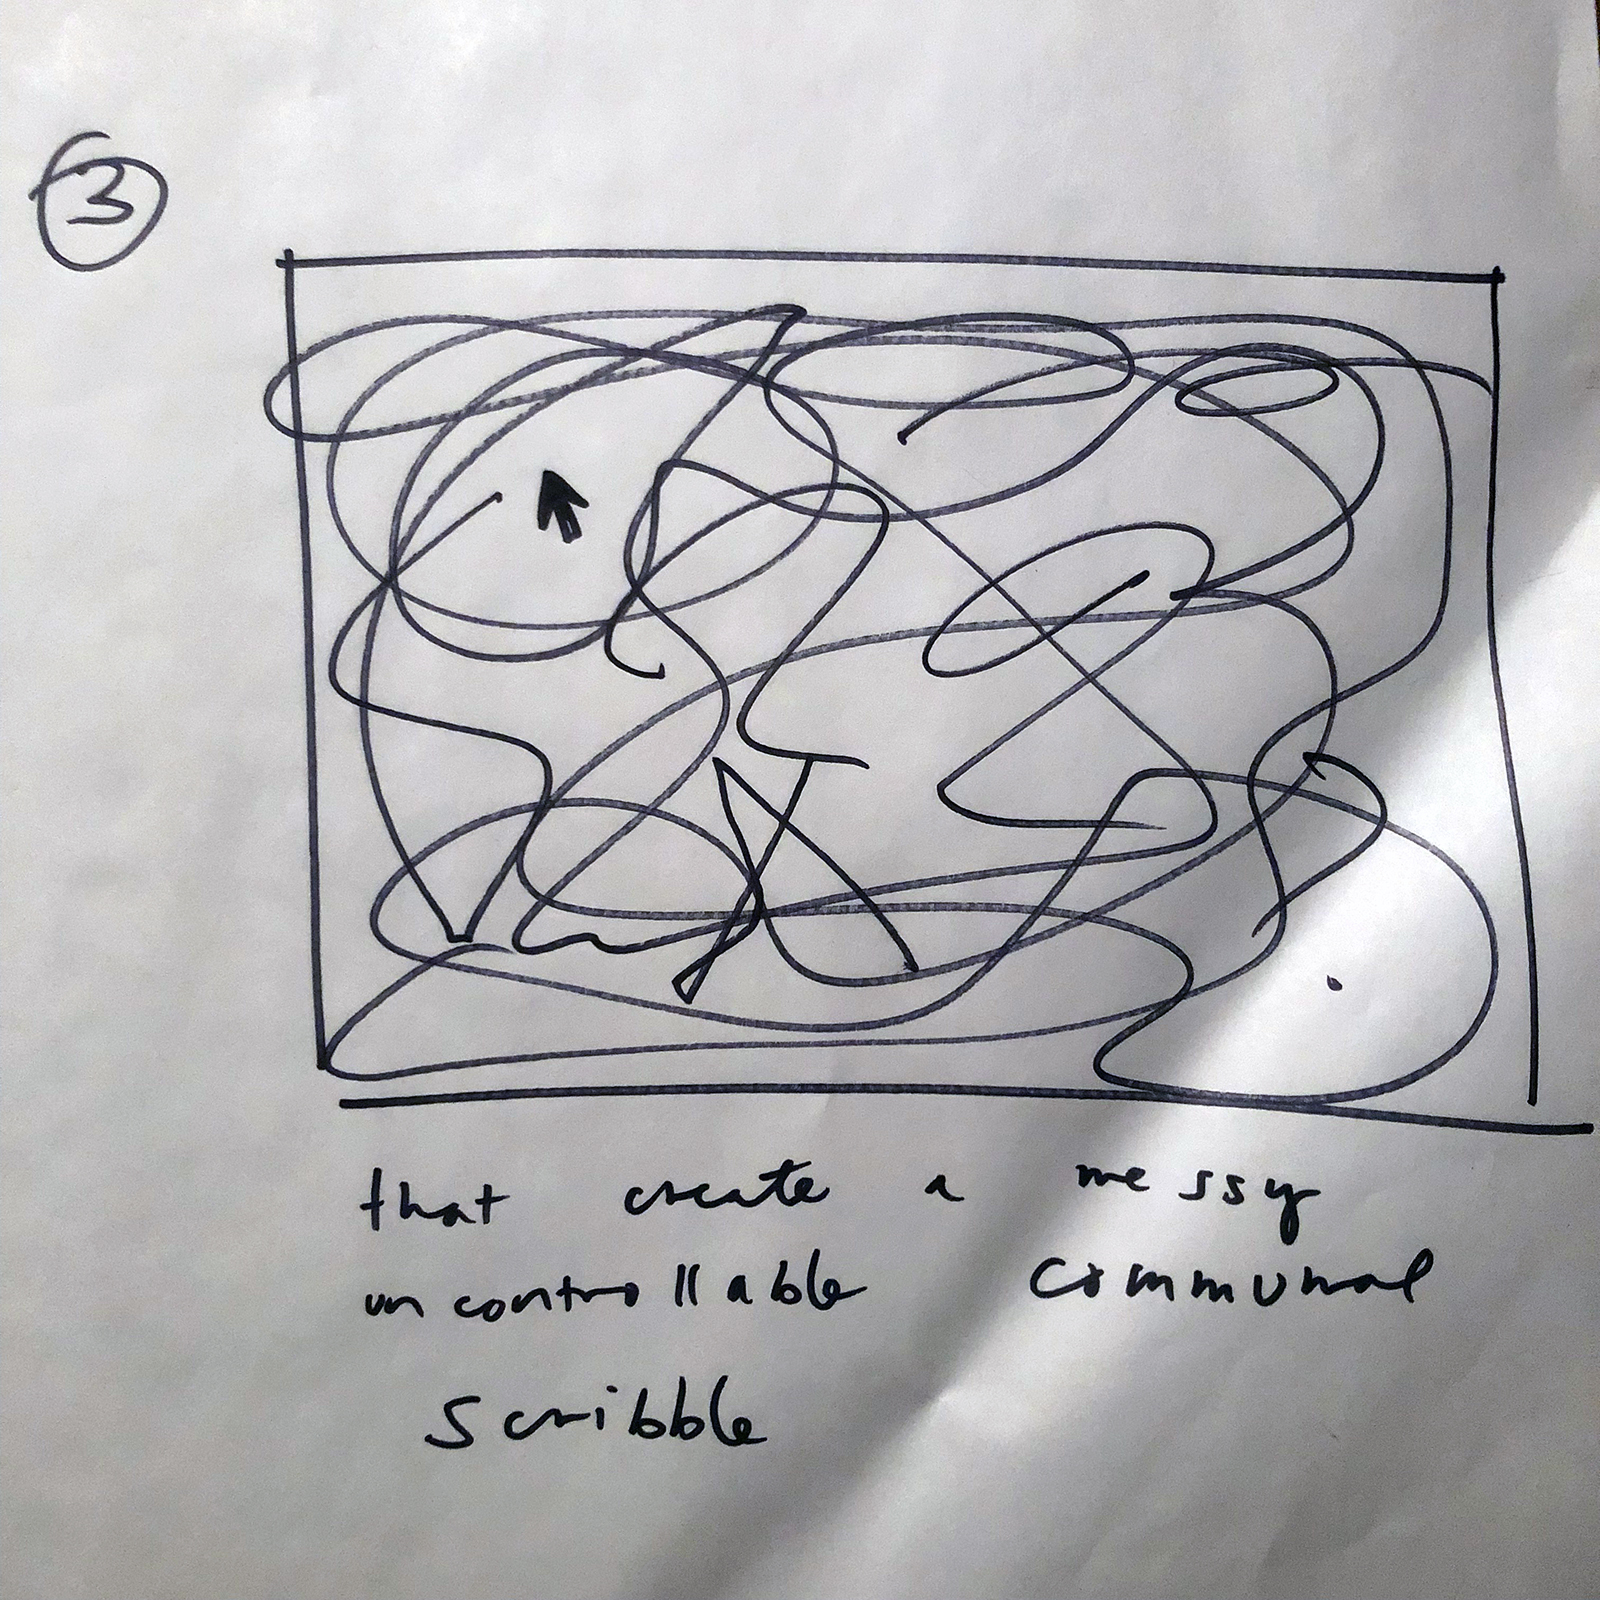 3
that create a messy
uncontrollable communal
scribble